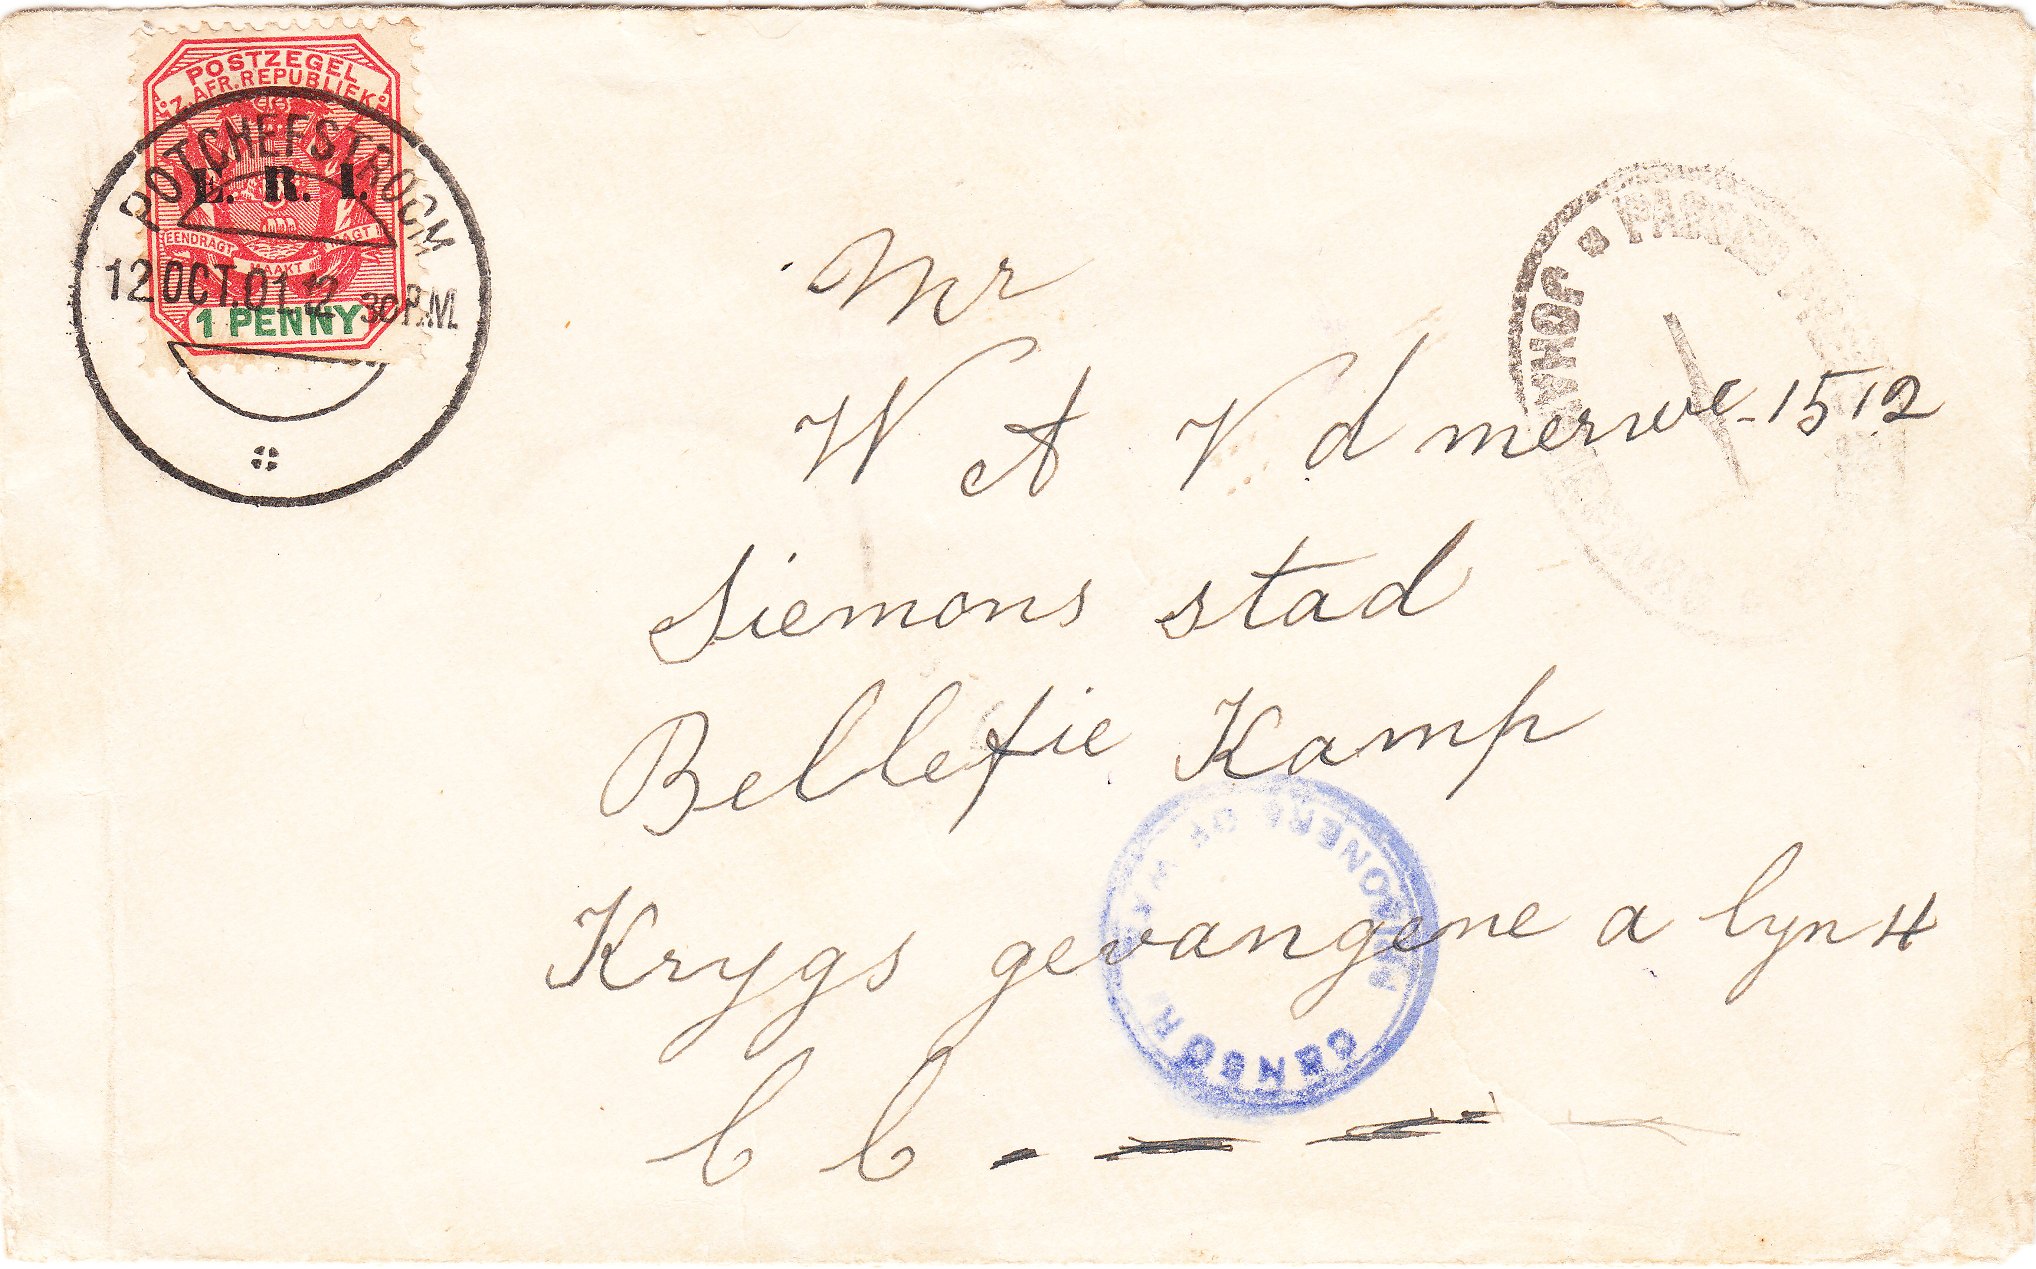 POSTZEGEL
Z. AFR. REPUBLIEK
POTCHEFSTROOM
E. R. I.
EENDRAGT MAAKT MAGT
12 OCT. 01. 12 30 P.M.
1 PENNY
PASSED
JOHA
Mr
W A V d merwe - 1512
Siemons stad
Bellefie Kamp
Krygs gevangene a lyn 4
C C
PRISONERS OF WAR
CENSOR